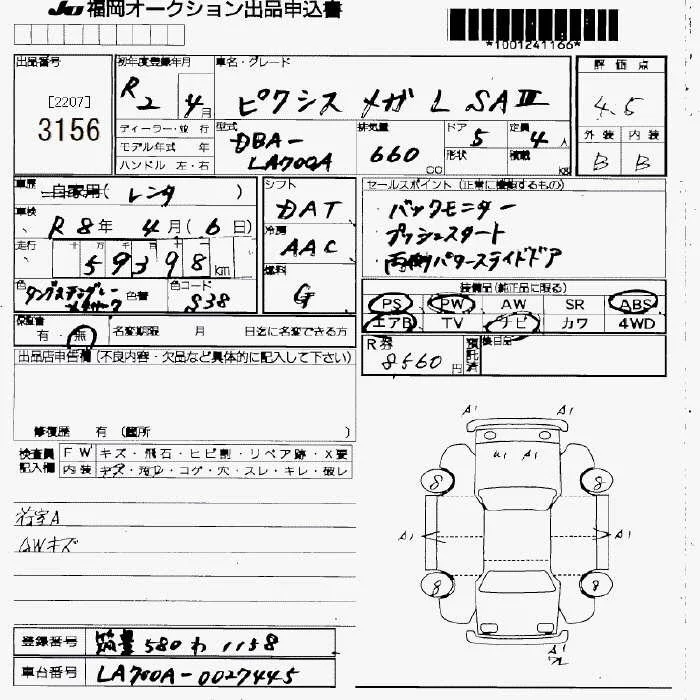 JU 福岡オークション出品申込書
*1001241166*
出品番号
[2207]
3156
初年度登録年月
R2 4月
ディーラー・並行
モデル年式 年
ハンドル 左・右
車名・グレード
ピクシス メガ L SAⅢ
型式
DBA-
LA700A
排気量
660 cc
ドア
5
形状
定員
4人
積載
kg
評価点
4.5
外装 内装
B B
車歴
自家用( レンタ )
車検
R 8年 4月( 6日)
走行
十 万 千 百 十
59398km
色
タングステングレー
メタリック
色替
色コード
S38
シフト
DAT
冷房
AAC
燃料
G
セールスポイント(正常に機能するもの)
・バックモニター
・プッシュスタート
・両側パワースライドドア
装備品(純正品に限る)
PS PW AW SR ABS
エアB TV ナビ カワ 4WD
保証書
有・無
名変期限 月 日迄に名変できる方
R券
8560円
預託済
後日品
出品店申告欄(不良内容・欠品など具体的に記入して下さい)
修復歴 有 (箇所 )
検査員
記入欄
FW キズ・飛石・ヒビ割・リペア跡・X要
内装 キズ・汚れ・コゲ・穴・スレ・キレ・破レ
AWキズ
A1 A1
U1 A1
8 8
A1 A1
8 8
A1
登録番号 筑豊 580 わ 1158
車台番号 LA700A-0027445